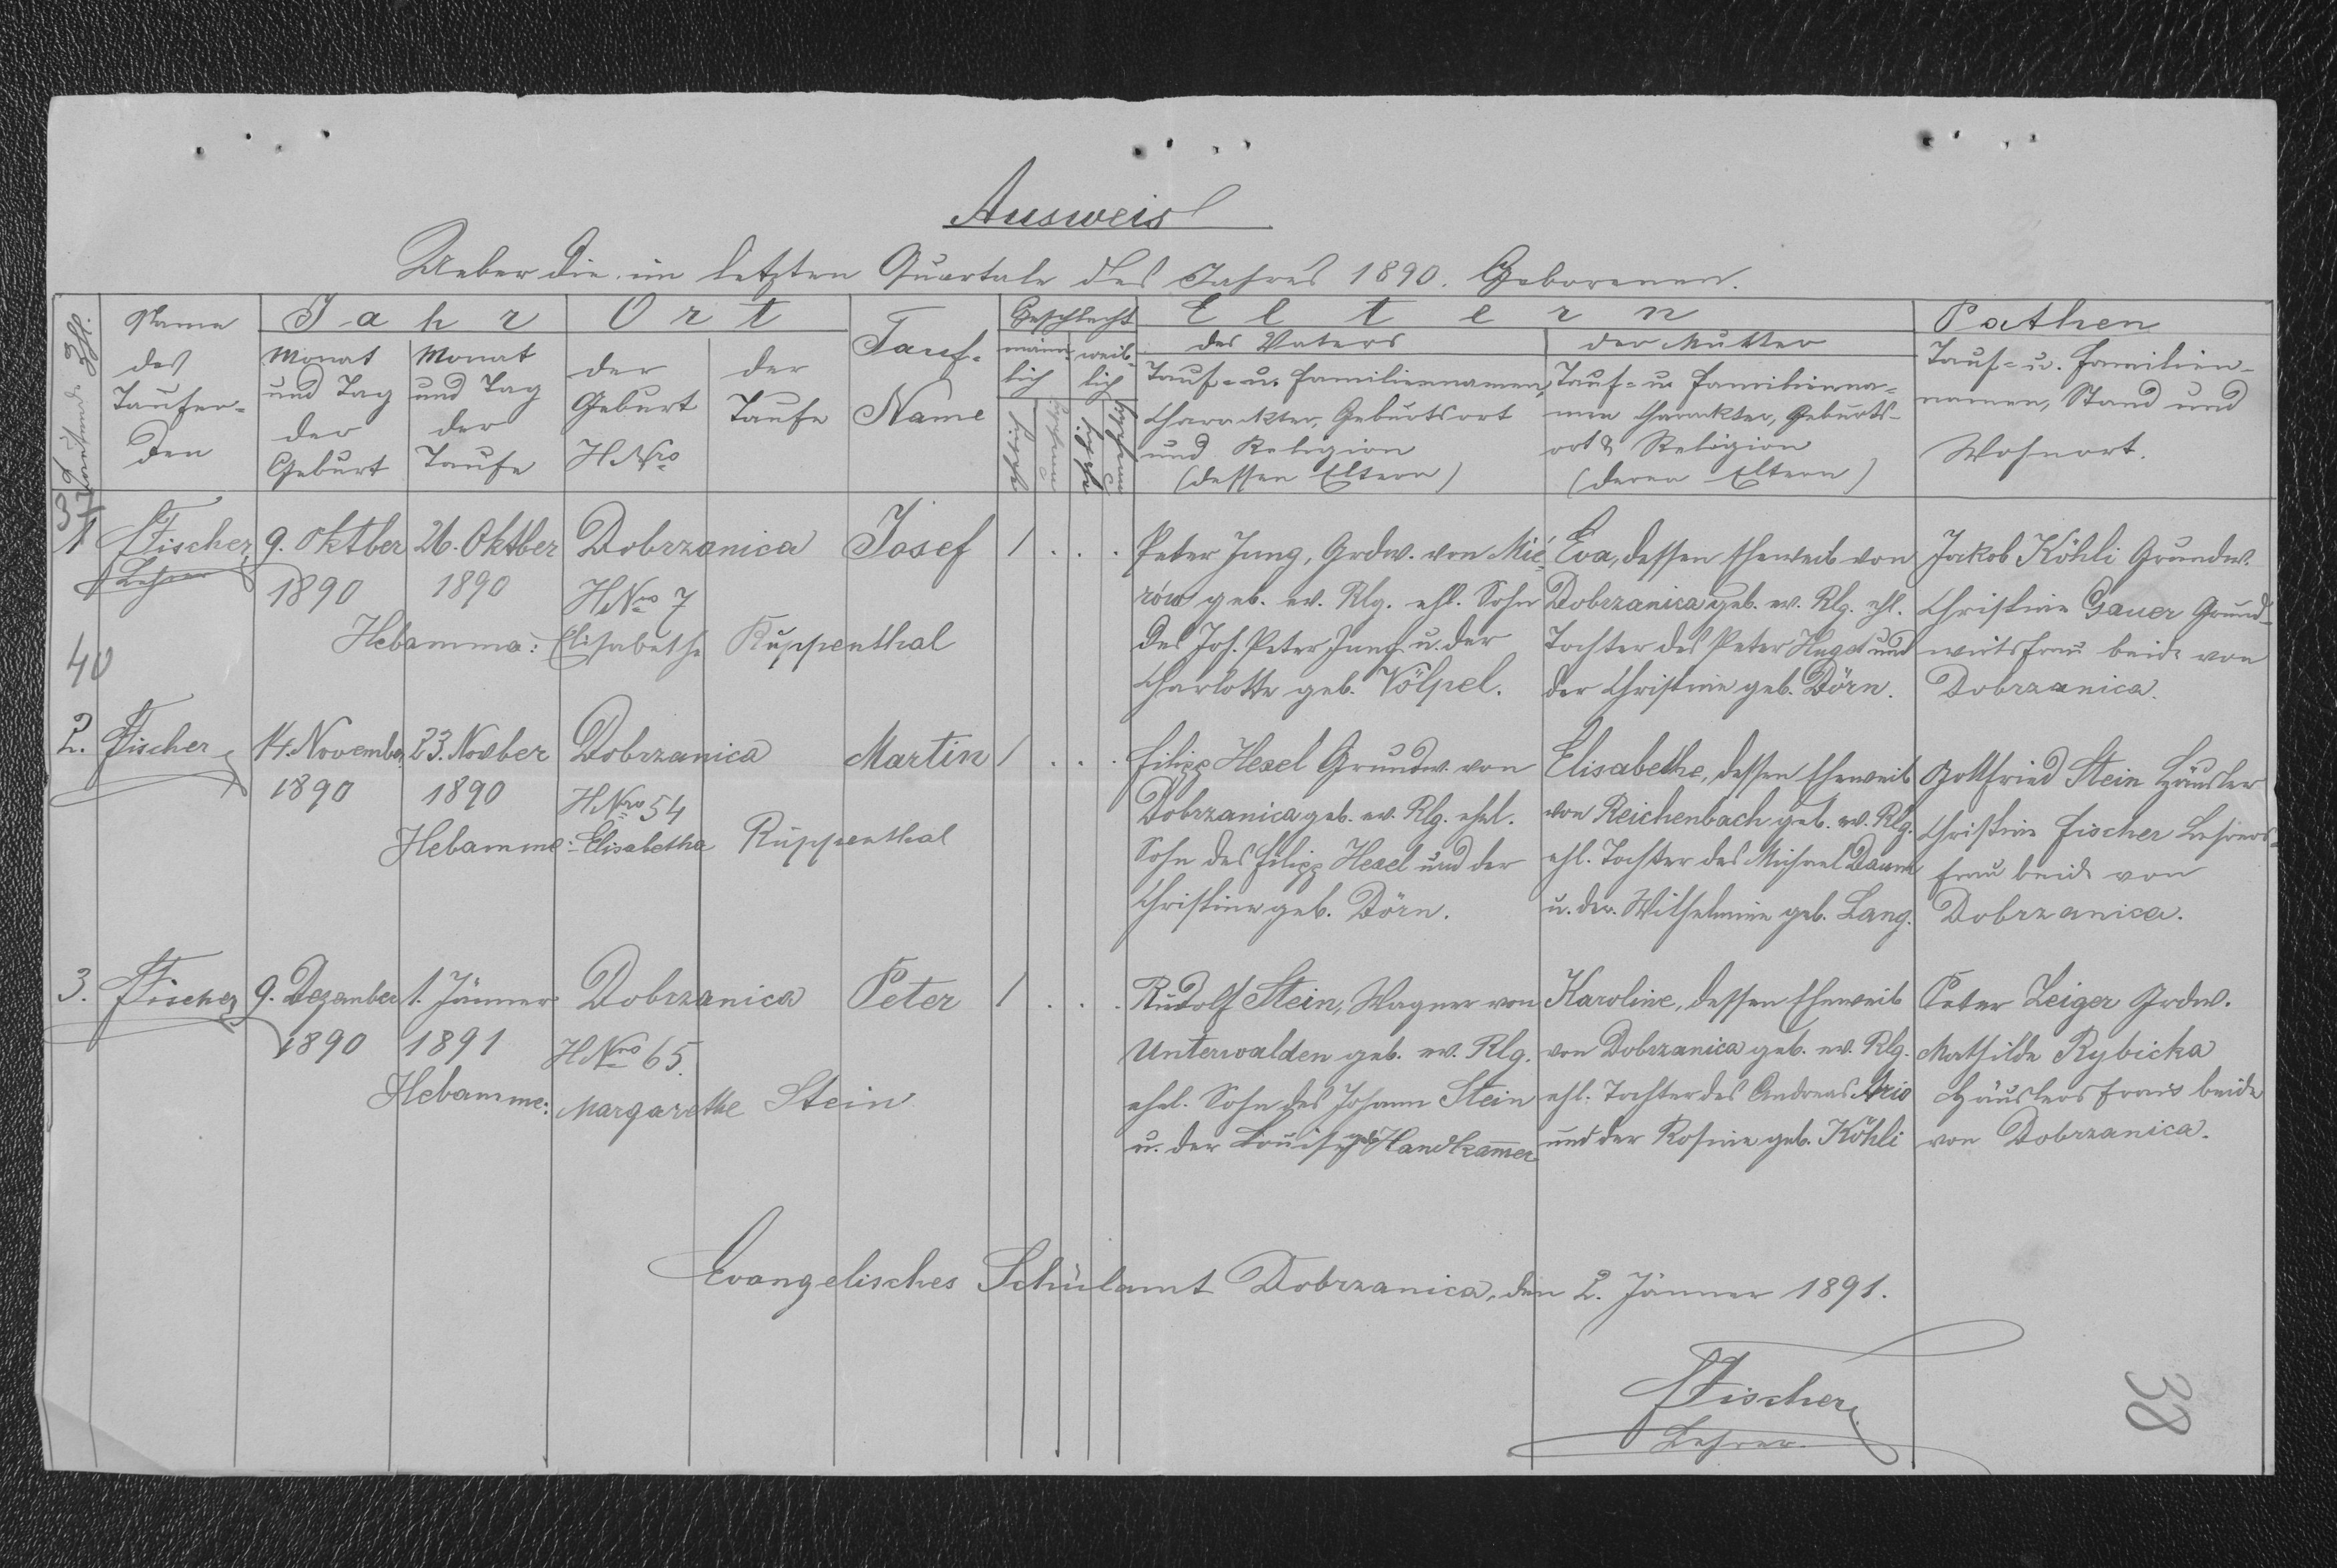 Ausweis
Ueber die im letzten Quartale des Jahres 1890. Geborenen.
Laufende Zhl.
Name des Taufen-den
Jahr
Monat und Tag der Geburt
Monat und Tag der Taufe
Ort
der Geburt HNro
der Taufe
Tauf-Name
Geschlecht
männ-lich
weib-lich
Eltern
des Vaters
Tauf- u. Familiennamen,
Charackter, Geburtsort
und Religion
(dessen Eltern)
der Mutter
Tauf- u. Familienna-
men Charakter, Geburts-
ort & Religion
(deren Eltern)
Pathen
Tauf- u. Familien-
namen, Stand und
Wohnort.
39
1 Fischer 9. Oktber 26. Oktber Dobrzanica Josef 1 . . .
Lehrer 1890 1890 HNro 7
Hebamma: Elisabethe Ruppenthal
Peter Jung, Grdw. von Mie-
rów geb. ev. Rlg. ehl. Sohn
des Joh. Peter Jung u. der
Charlotte geb. Völpel.
Eva, dessen Eheweib von
Dobrzanica geb. ev. Rlg. ehl.
Tochter des Peter Hugel und
der Christine geb. Dörn.
Jakob Köhli Grundw.
Christine Gauer Grund-
wirtsfrau beide von
Dobrzanica.
40
2. Fischer 14. November 23. Novber Dobrzanica Martin 1 . . .
1890 1890 HNro 54
Hebamme: Elisabetha Ruppenthal
Filipp Hexel Grundw. von
Dobrzanica geb. ev. Rlg. ehel.
Sohn des Filipp Hexel und der
Christine geb. Dörn.
Elisabethe, dessen Eheweib
von Reichenbach geb. ev. Rlg.
ehl. Tochter des Michael Daum
u. der Wilhelmine geb. Lang.
Gottfried Stein Häusler
Christine Fischer Lehrers-
frau beide von
Dobrzanica.
3. Fischer 9. Dezember 1. Jänner Dobrzanica Peter 1 . . .
1890 1891 HNro 65.
Hebamme: Margarethe Stein
Rudolf Stein, Wagner von
Unterwalden geb. ev. Rlg.
ehel. Sohn des Johann Stein
u. der Louise geb. Handkammer
Karoline, dessen Eheweib
von Dobrzanica geb. ev. Rlg.
ehl. Tochter des Andreas Ario
und der Rosine geb. Köhli
Peter Zeiger Grdw.
Mathilde Rybicka
Häuslers frau beide
von Dobrzanica.
Evangelisches Schulamt Dobrzanica, den 2. Jänner 1891.
Fischer
Lehrer.
38